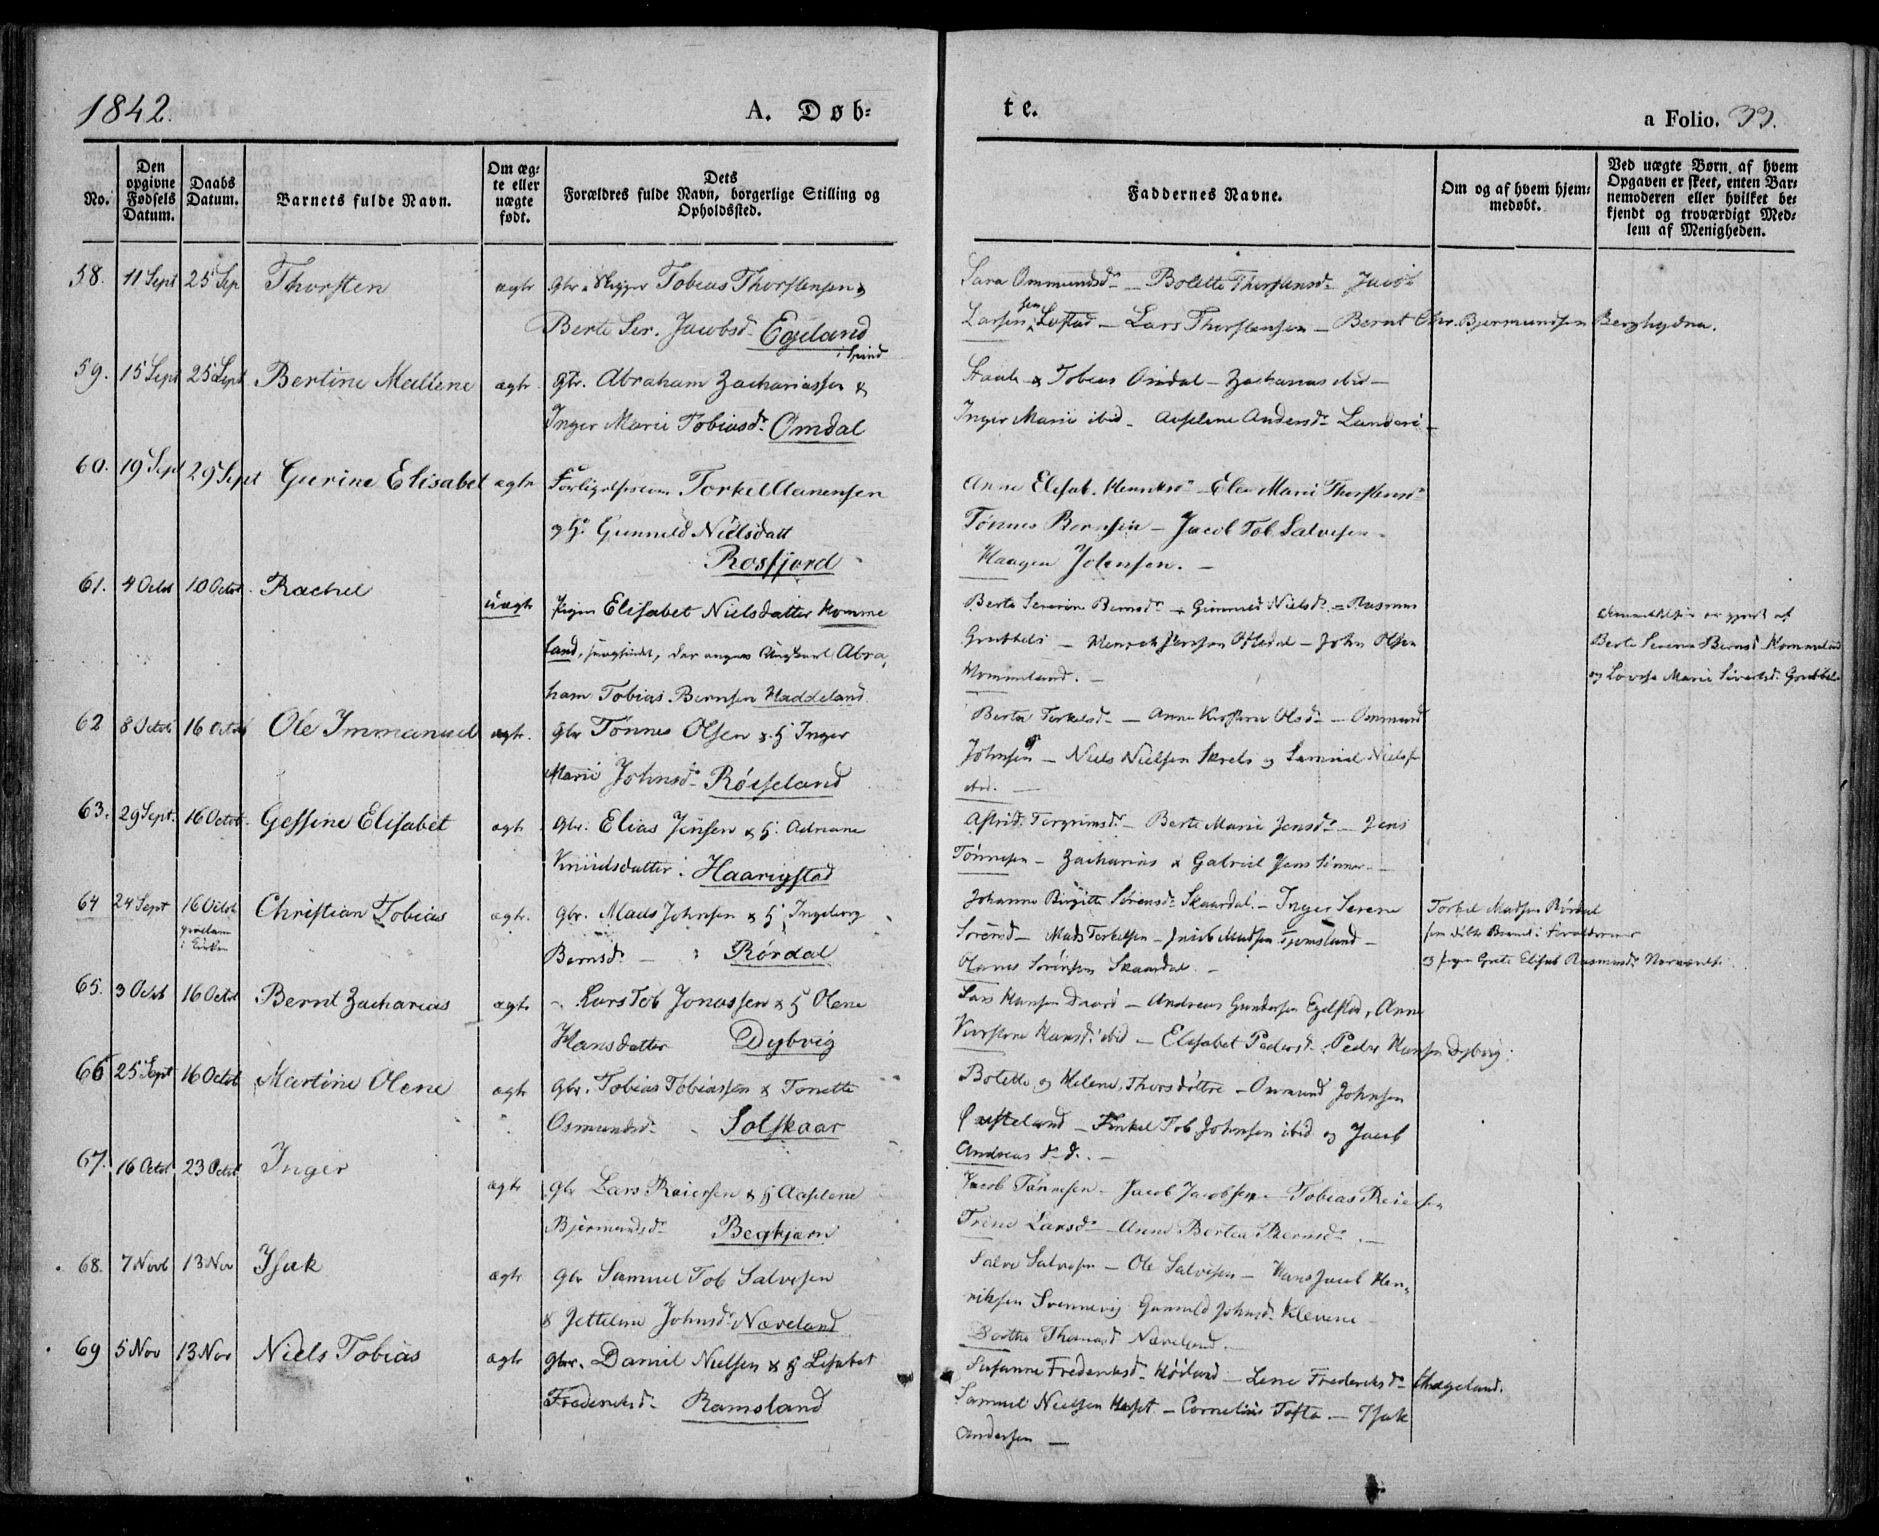 1842. A. Døb-
te. a Folio. 33.
No.
Den opgivne Fødsels Datum.
Daabs Datum.
Barnets fulde Navn.
Om ægte eller uægte født.
Dets Forældres fulde Navn, borgerlige Stilling og Opholdssted.
Faddernes Navne.
Om og af hvem hjemmedøbt.
Ved uægte Børn, af hvem Opgaven er skeet, enten Barnemoderen eller hvilket bekjendt og troværdigt Medlem af Menigheden.
58. 11 Sept 25 Sep Thorsten ægte Gbr Tobias Thorstensen &
Berte Ser. Jacobsd. Egeland
i Spind
Sara Ommundsd. – Bolette Thorstensd. Jacob
Larsen Lofstad – Lars Thorstensen – Bernt Chr. Bjermundsen
59. 15 Sept 25 Sept Bertine Mallene ægte Gbr. Abraham Zachariassen &
Inger Marie Tobiasd. Omdal
Tobias Omdal – Zacharias ibid –
Inger Marie ibid – Andersd.
60. 19 Sept 29 Sept Gurine Elisabet ægte Torkel Aanensen
og H. Gunnild Nielsdatt
Rosfjord
Anne Elisab. Henriksd. – Elen Marie Thorstensd.
Tønnes Bernsen – Jacob Tob Salvesen –
Haagen Johnsen. –
61. 4 Octob 10 Octob. Rachel uægte Pigen Elisabet Nielsdatter Homme
land, Ungkarl Abra,
ham Tobias Bernsen Haddeland.
Berte Severine Bernsd. – Gunnild Nielsd. – Rasmus
– Henrik Jensen – John Olsen
Hommeland. –
er gjort af
Berte Severine Bernsd. Hommeland
og Lovise Marie Sivertsd.
62 8 Octob 16 Octob Ole Immanuel ægte. Gbr Tønnes Olsen & H Inger
Marie Johnsd. Røiseland
Berta Torkelsd. – Anne Kirstine Olsd. – Ommund
Johnsen – Niels Nielsen Skrels og Samuel Niels
ibid. –
63. 29 Sept. 16 Octob. Gessine Elisabet ægte Gbr. Elias Jensen & H. Adriane
Knudsdatter. Haarigstad
Astrid Torgrimsd. – Berte Marie Jensd. – Jens
Tønnesen – Zacharias & Gabriel Jens Sønner. –
64 24 Sept 16 Octob Christian Tobias ægte. Gbr. Mads Johnsen & H Ingeborg
i Kirken
Bernsd. – Rørdal
Johanne Birgitte Sørensd. Skaardal. – Inger Serene
Sørensd – Mads Torkelsen – Jacob Madsen Tjomsland –
Hanes Sørensen Skaardal. –
Torkel Madsen Rørdal
og Pigen Grete Elisab Rasmusd.
65. 3 Octob 16 Octob Bernt Zacharias ægte – Lars Tob Jonassen & H Olene
Hansdatter Dybvig
Lars Hansen – Andreas Gundersen Egelstad, Anne
Kirstine Hansd. ibid – Elisabet Pedersd. Peder Hansen Dybvig.
66 25 Sept 16 Octob Martine Olene ægte Gbr. Tobias Tobiassen & Tonette
Osmundsd. Solskaar
Bolette og Helene Thorsdøttre – Ommund Johnsen
– Tob Johnsen ibid og Jacob
Andreas d. d. –
67. 16 Octob 23 Octob Inger ægte Gbr Lars Reiersen & H Aaselene
Bjermundsd. Begkjærn
Jacob Tønnesen – Jacob Jacobsen – Tobias Reiersen
Trine Larsd. – Anne Bertea –
68. 7 Novb 13 Nov Isak ægte Gbr Samuel Tob Salvesen
& Jetteline Johnsd. Næveland
Salve Salvesen – Ole Salvesen – Hans Jacob Hen-
riksen Svennevig Gunnild Johnsd. Klevene –
Dorthe Thomasd Næveland. –
69 5 Nov 13 Nov Niels Tobias ægte Gbr. Daniel Nielsen & H Lisabet
Frederiksd. Ramsland
Susanne Frederiksd. Høiland – Lene Frederiksd. Skageland.
Samuel Nielsen – Cornelius Tofte – Isak
Andersen –